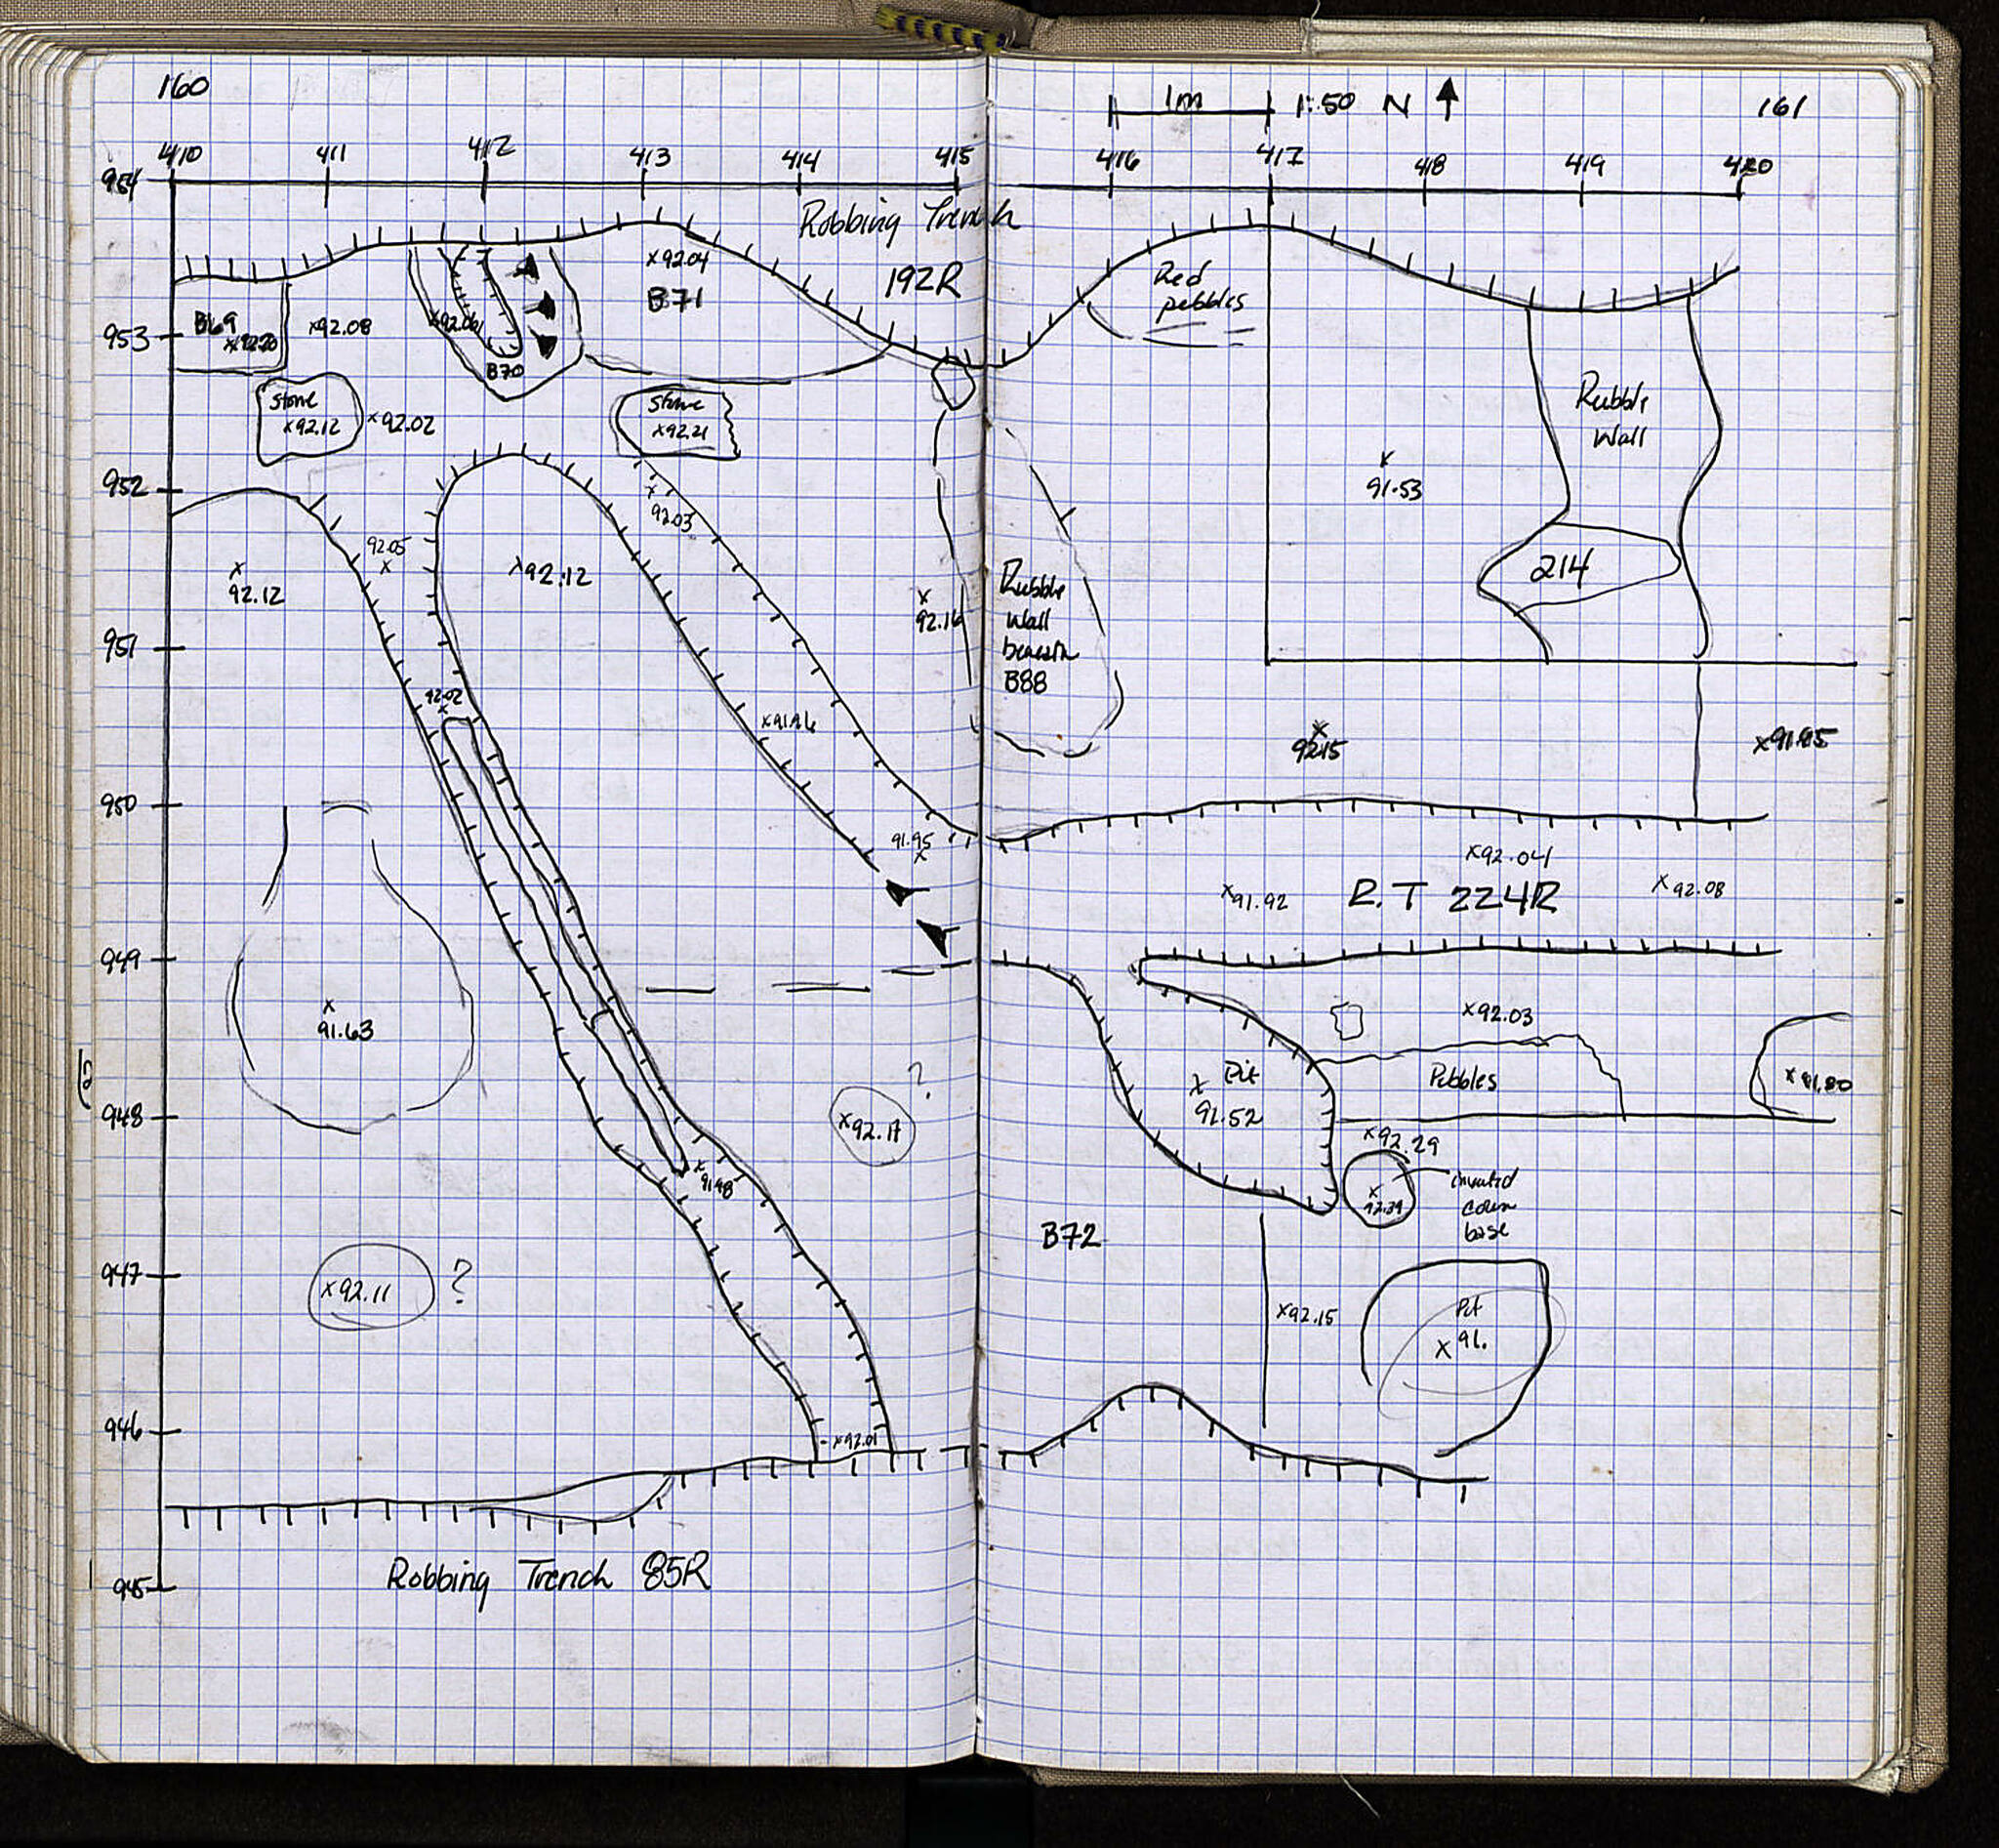 160
1m 1:50 N
161
410 411 412 413 414 415 416 417 418 419 420
954
Robbing Trench
192R
x92.04
B71
Red
pebbles
B69
x92.20
953
x92.08
B70
Stone
x92.12
x92.02
Stone
x92.21
Rubble
Wall
952
x
91.53
x
92.03
92.05
x
x
92.12
x92.12
214
x
92.16
Rubble
wall
beneath
B88
951
92.02
x
x91.96
x
92.15
x91.85
950
91.95
x
x92.04
x91.92
R.T 224R
x92.08
949
x
91.63
x92.03
?
Pit
x
91.52
Pebbles
x91.80
948
x92.17
x92.29
x
91.98
x
92.39
inverted
column
base
B72
947
x92.11
?
x92.15
Pit
x91.
946
x92.01
945
Robbing Trench 85R